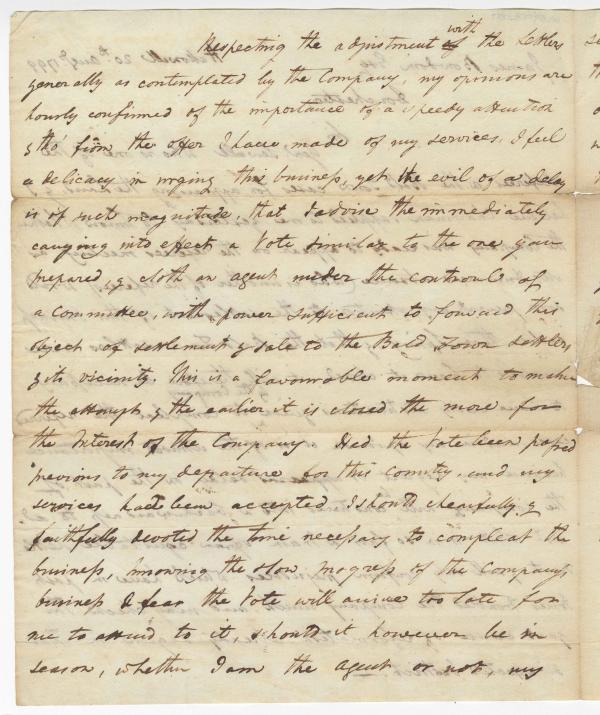 with
Respecting the adjustment of the Settlers
generally as contemplated by the Company, my opinions are
hourly confirmed of the importance of a speedy attention
& tho' from the offer I have made of my services, I feel
a delicacy in urging this business, yet the evil of a delay
is of such magnitude, that I advise the immediately
carrying into effect a Vote similar to the one you
prepared, & cloth an agent under the controul of
a Committee, with power sufficient to forward this
object of settlement & sale to the Bald Town Settlers
& its vicinity. This is a favourable moment to make
the attempt & the earlier it is closed the more for
the Interest of the Company. Had the Vote been passed
previous to my departure for this country, and my
services had been accepted I should chearfully &
faithfully devoted the time necessary to compleat the
business, knowing the slow progress of the Companys
business I fear the Vote will arrive too late for
me to attend to it, should it however be in
season, whether I am the agent or not, my